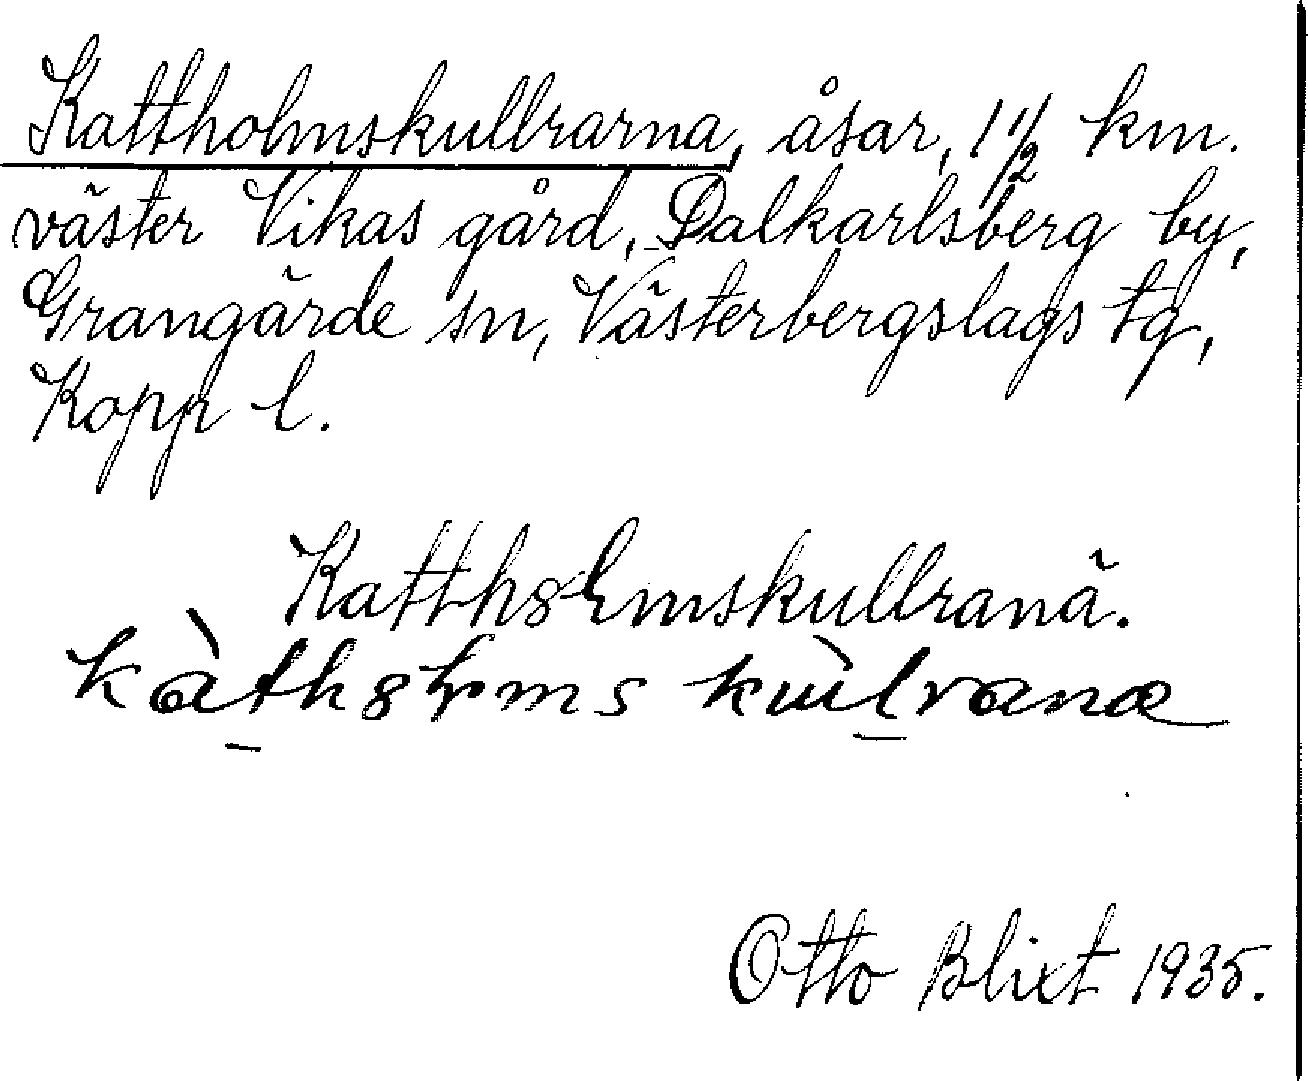 Kattholmskullrarna, åsar, 1 1/2 km.
väster Vikas gård, Dalkarlsberg by,
Grangärde sn, Västerbergslags tg,
Kopp l.
Katthɞꞎmskullranä.
kàthɞꞎms kùlranæ
Otto Blixt 1935.